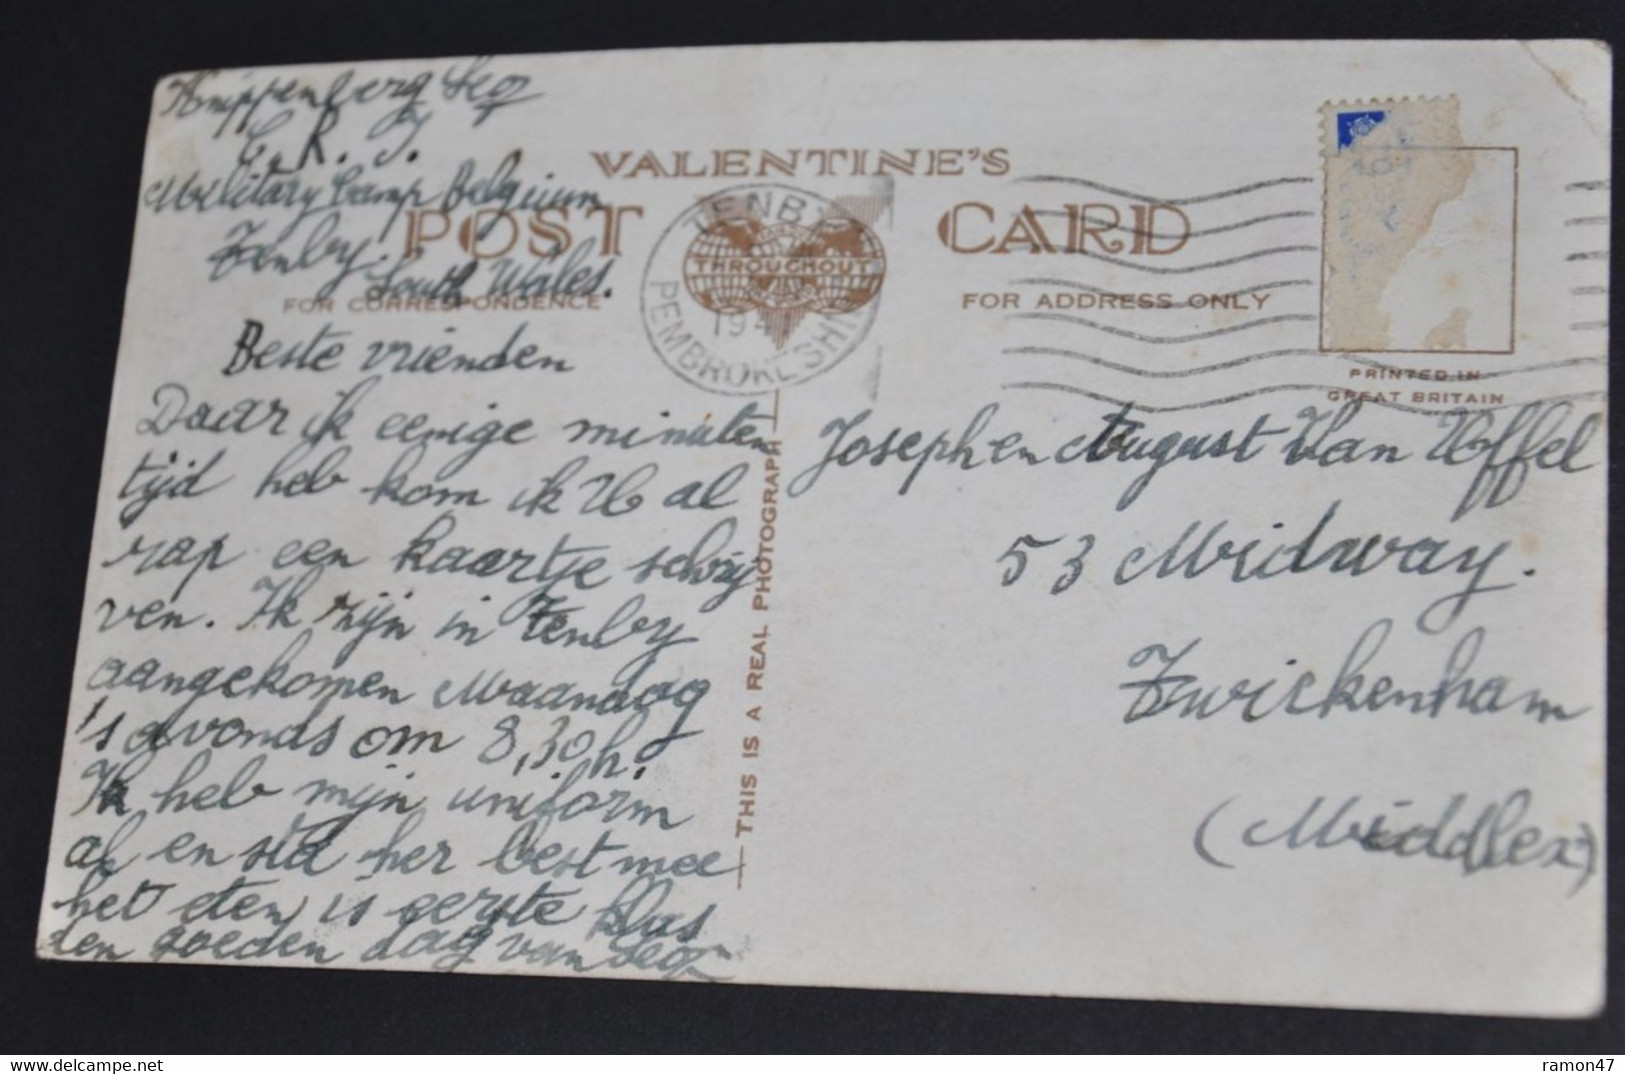 Knippenberg Leo
C. R. I.
Military Camp Belgium
Tenby.
South Wales.
VALENTINE'S
POST CARD
THROUGHOUT
FOR CORRESPONDENCE
FOR ADDRESS ONLY
TENBY
PEMBROKESHIRE
194
PRINTED IN
GREAT BRITAIN
Beste vrienden
Daar ik eenige minuten
tijd heb kom ik U al
rap een kaartje schrij
ven. Ik zijn in Tenby
aangekomen Maandag
's avonds om 8,30 h.
Ik heb mijn uniform
al en stel her best mee
het eten is eerste klas
den goeden dag van Leo
THIS IS A REAL PHOTOGRAPH
Joseph en August Van Uffel
53 Midway.
Twickenham
(Middlesex)
ramon47